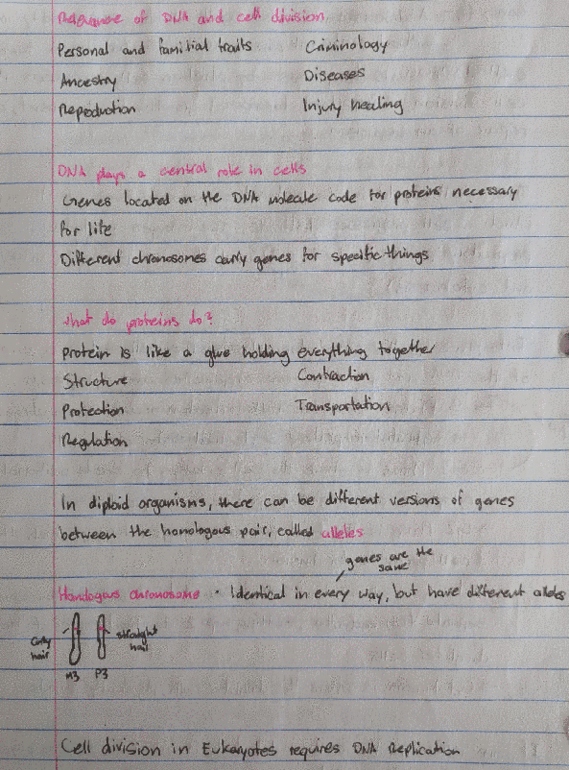 Relevance of DNA and cell division
Personal and familial traits Criminology
Ancestry Diseases
Reproduction Injury healing
DNA plays a central role in cells
Genes located on the DNA molecule code for proteins necessary
for life
Different chromosomes carry genes for specific things
What do proteins do?
Protein is like a glue holding everything together
Structure Contraction
Protection Transportation
Regulation
In diploid organisms, there can be different versions of genes
between the homologous pair, called alleles
genes are the
same
Homologous chromosome • Identical in every way, but have different alleles
Curly straight
hair hair
M3 P3
Cell division in Eukaryotes requires DNA Replication